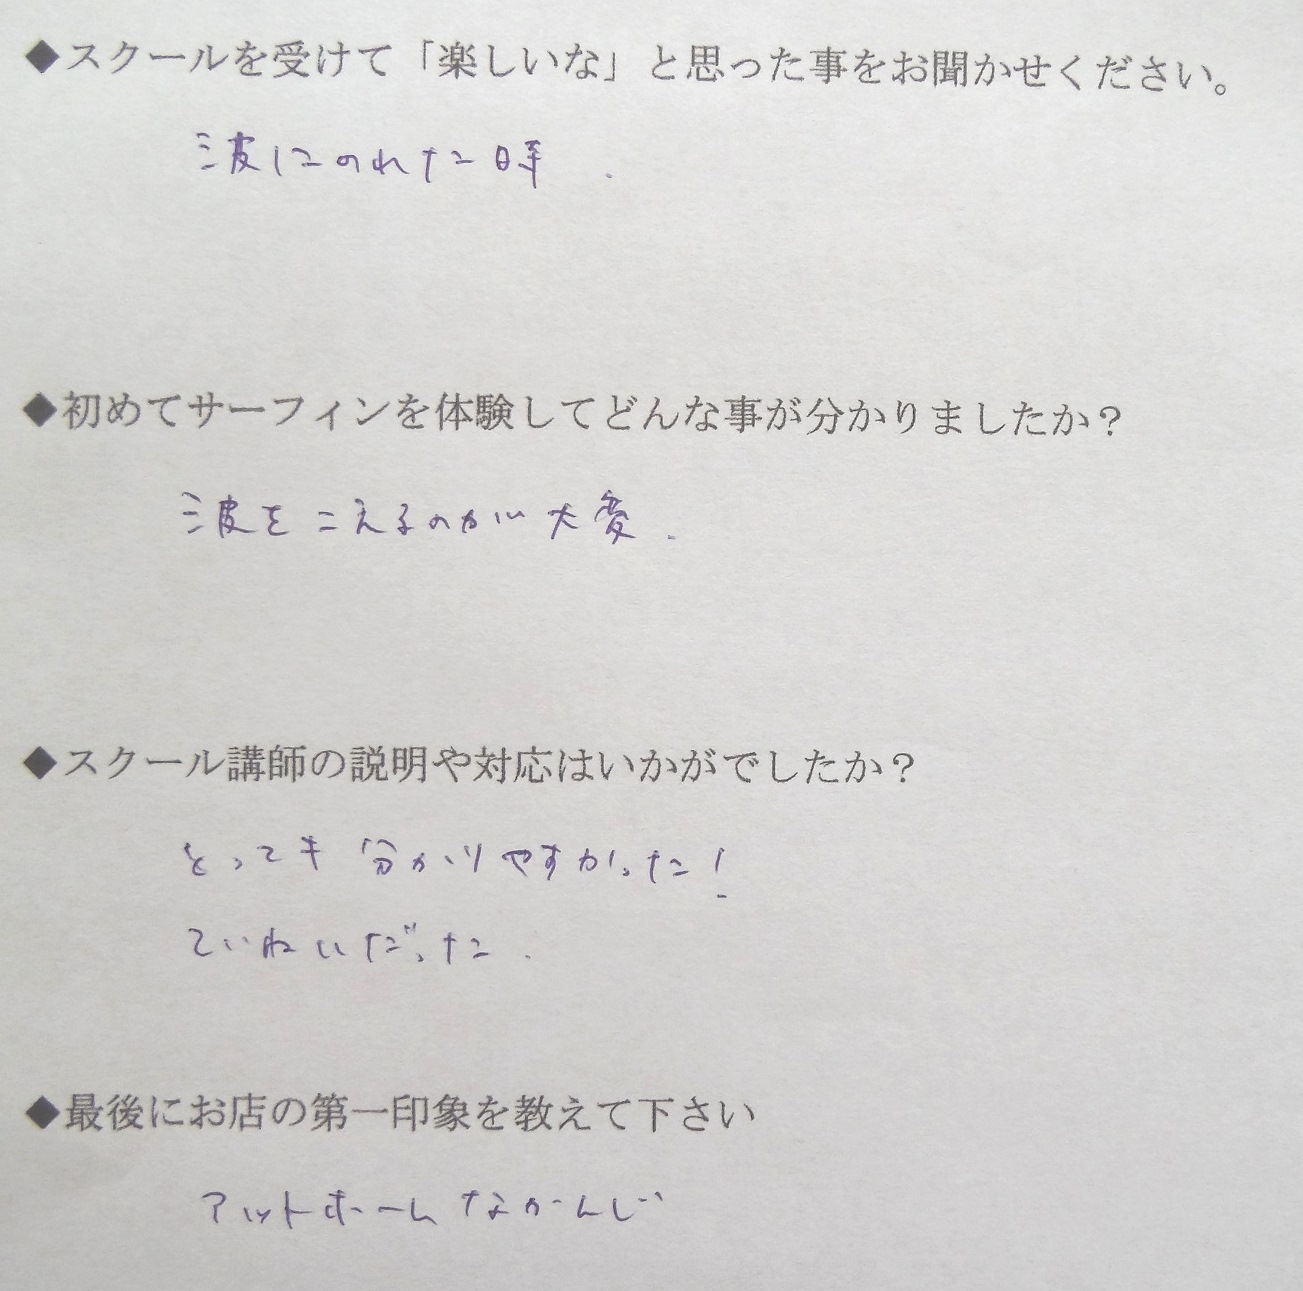 ◆スクールを受けて「楽しいな」と思った事をお聞かせください。
波にのれた時.
◆初めてサーフィンを体験してどんな事が分かりましたか？
波をこえるのが大変.
◆スクール講師の説明や対応はいかがでしたか？
とっても分かりやすかった!
ていねいだった.
◆最後にお店の第一印象を教えて下さい
アットホームなかんじ